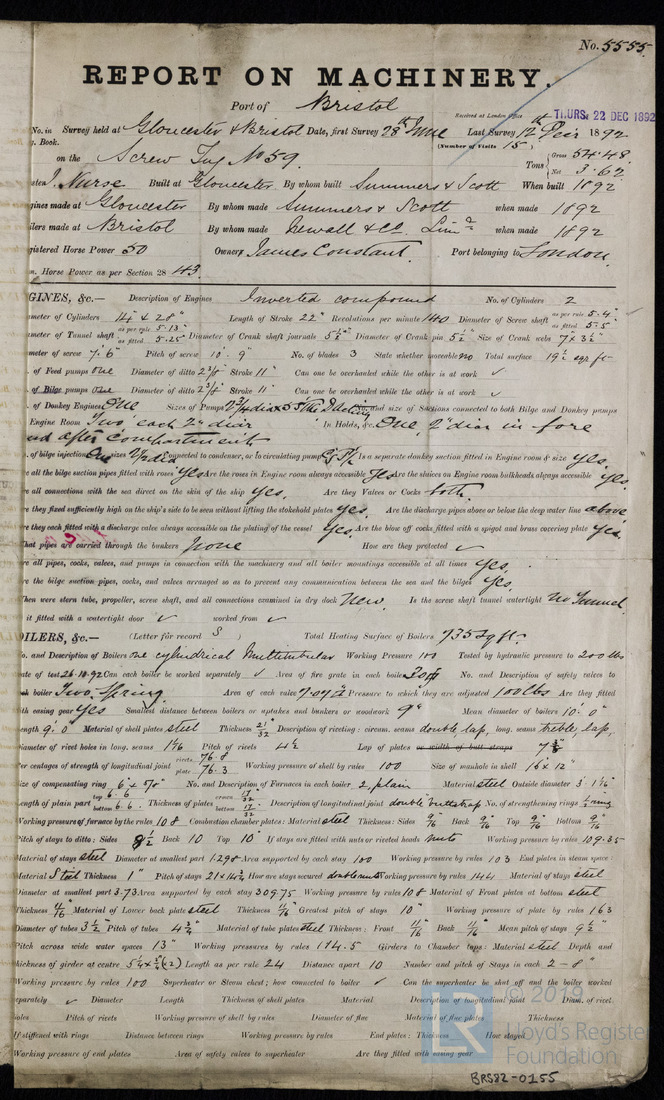 No. 5555.
REPORT ON MACHINERY.
Port of Bristol
Received at London Office THURS. 22 DEC 1892
No. in Survey held at Gloucester & Bristol Date, first Survey 28th June Last Survey 12th Decr 1892
g. Book. (Number of Visits 15)
on the Screw Tug No 59. Tons Gross 54.48 Net 3.62
ster J. Nurse Built at Gloucester By whom built Summers & Scott When built 1892
gines made at Gloucester By whom made Summers & Scott when made 1892
ilers made at Bristol By whom made Newall & Co. Limd when made 1892
gistered Horse Power 50 Owners James Constant. Port belonging to London
m. Horse Power as per Section 28 43.
GINES, &c.— Description of Engines Inverted compound No. of Cylinders 2
ameter of Cylinders 14" & 28" Length of Stroke 22" Revolutions per minute 140 Diameter of Screw shaft as per rule 5.4" as fitted 5.5"
ameter of Tunnel shaft as per rule 5.13" as fitted 5.25" Diameter of Crank shaft journals 5½" Diameter of Crank pin 5½" Size of Crank webs 7" x 3½"
meter of screw 7'.6" Pitch of screw 10'.9" No. of blades 3 State whether moveable no Total surface 19½ sqr ft
. of Feed pumps one Diameter of ditto Stroke 11" Can one be overhauled while the other is at work ✓
. of Bilge pumps one Diameter of ditto Stroke 11" Can one be overhauled while the other is at work ✓
. of Donkey Engines One Sizes of Pumps and size of Suctions connected to both Bilge and Donkey pumps
Engine Room Two, each 2" diar In Holds, &c. One, 2" diar in fore
and after Compartment
. of bilge injections One sizes connected to condenser, or to circulating pump Is a separate donkey suction fitted in Engine room & size yes.
re all the bilge suction pipes fitted with roses yes Are the roses in Engine room always accessible yes Are the sluices on Engine room bulkheads always accessible yes
re all connections with the sea direct on the skin of the ship yes. Are they Valves or Cocks both.
re they fixed sufficiently high on the ship's side to be seen without lifting the stokehold plates yes. Are the discharge pipes above or below the deep water line above
re they each fitted with a discharge valve always accessible on the plating of the vessel yes. Are the blow off cocks fitted with a spigot and brass covering plate yes.
hat pipes are carried through the bunkers none How are they protected ✓
re all pipes, cocks, valves, and pumps in connection with the machinery and all boiler mountings accessible at all times yes.
re the bilge suction pipes, cocks, and valves arranged so as to prevent any communication between the sea and the bilges yes.
hen were stern tube, propeller, screw shaft, and all connections examined in dry dock New. Is the screw shaft tunnel watertight no Tunnel.
it fitted with a watertight door ✓ worked from ✓
OILERS, &c.— (Letter for record S) Total Heating Surface of Boilers 735 sq ft.
o. and Description of Boilers one cylindrical Multitubular Working Pressure 100 Tested by hydraulic pressure to 200 lbs
ate of test 26.10.92 Can each boiler be worked separately ✓ Area of fire grate in each boiler No. and Description of safety valves to
ch boiler Two, Spring. Area of each valve Pressure to which they are adjusted 100 lbs Are they fitted
th easing gear yes Smallest distance between boilers or uptakes and bunkers or woodwork 9" Mean diameter of boilers 10'.0"
ength 9'.0 Material of shell plates steel Thickness 21/32" Description of riveting: circum. seams double, lap, long. seams treble, lap,
iameter of rivet holes in long. seams 1 1/16 Pitch of rivets 4½ Lap of plates or width of butt straps
er centages of strength of longitudinal joint rivets 76.8 plate 76.3 Working pressure of shell by rules 100 Size of manhole in shell 16" x 12"
ize of compensating ring 6" x 7/8" No. and Description of Furnaces in each boiler 2, plain Material steel Outside diameter 3' 1 1/16"
ength of plain part top 6.6 bottom 6.6. Thickness of plates crown 17/32 bottom 17/32 Description of longitudinal joint double buttstrap No. of strengthening rings
orking pressure of furnace by the rules 108 Combustion chamber plates: Material steel Thickness: Sides 9/16 Back 9/16 Top 9/16 Bottom 9/16
itch of stays to ditto: Sides 8½ Back 10 Top 10" If stays are fitted with nuts or riveted heads nuts Working pressure by rules 109.35
aterial of stays steel Diameter at smallest part 1.298 Area supported by each stay 100 Working pressure by rules 103 End plates in steam space:
aterial Steel Thickness 1" Pitch of stays 21 x 14¾ How are stays secured double nuts Working pressure by rules 144 Material of stays steel
iameter at smallest part 3.73 Area supported by each stay 309.75 Working pressure by rules 108 Material of Front plates at bottom steel
hickness 11/16 Material of Lower back plate steel Thickness 11/16 Greatest pitch of stays 10" Working pressure of plate by rules 163
iameter of tubes 3½ Pitch of tubes 4¾ Material of tube plates steel Thickness: Front 11/16 Back 11/16 Mean pitch of stays 9½"
itch across wide water spaces 13" Working pressures by rules 114.5 Girders to Chamber tops: Material steel Depth and
hickness of girder at centre 5¼ x ¾ (2) Length as per rule 24 Distance apart 10 Number and pitch of Stays in each 2 - 8"
orking pressure by rules 100 Superheater or Steam chest; how connected to boiler ✓ Can the superheater be shut off and the boiler worked
eparately ✓ Diameter Length Thickness of shell plates Material Description of longitudinal joint Diam. of rivet
oles Pitch of rivets Working pressure of shell by rules Diameter of flue Material of flue plates Thickness
f stiffened with rings Distance between rings Working pressure by rules End plates: Thickness How stayed
orking pressure of end plates Area of safety valves to superheater Are they fitted with easing gear
© 2019
LR Lloyd's Register
Foundation
BRS82-0155